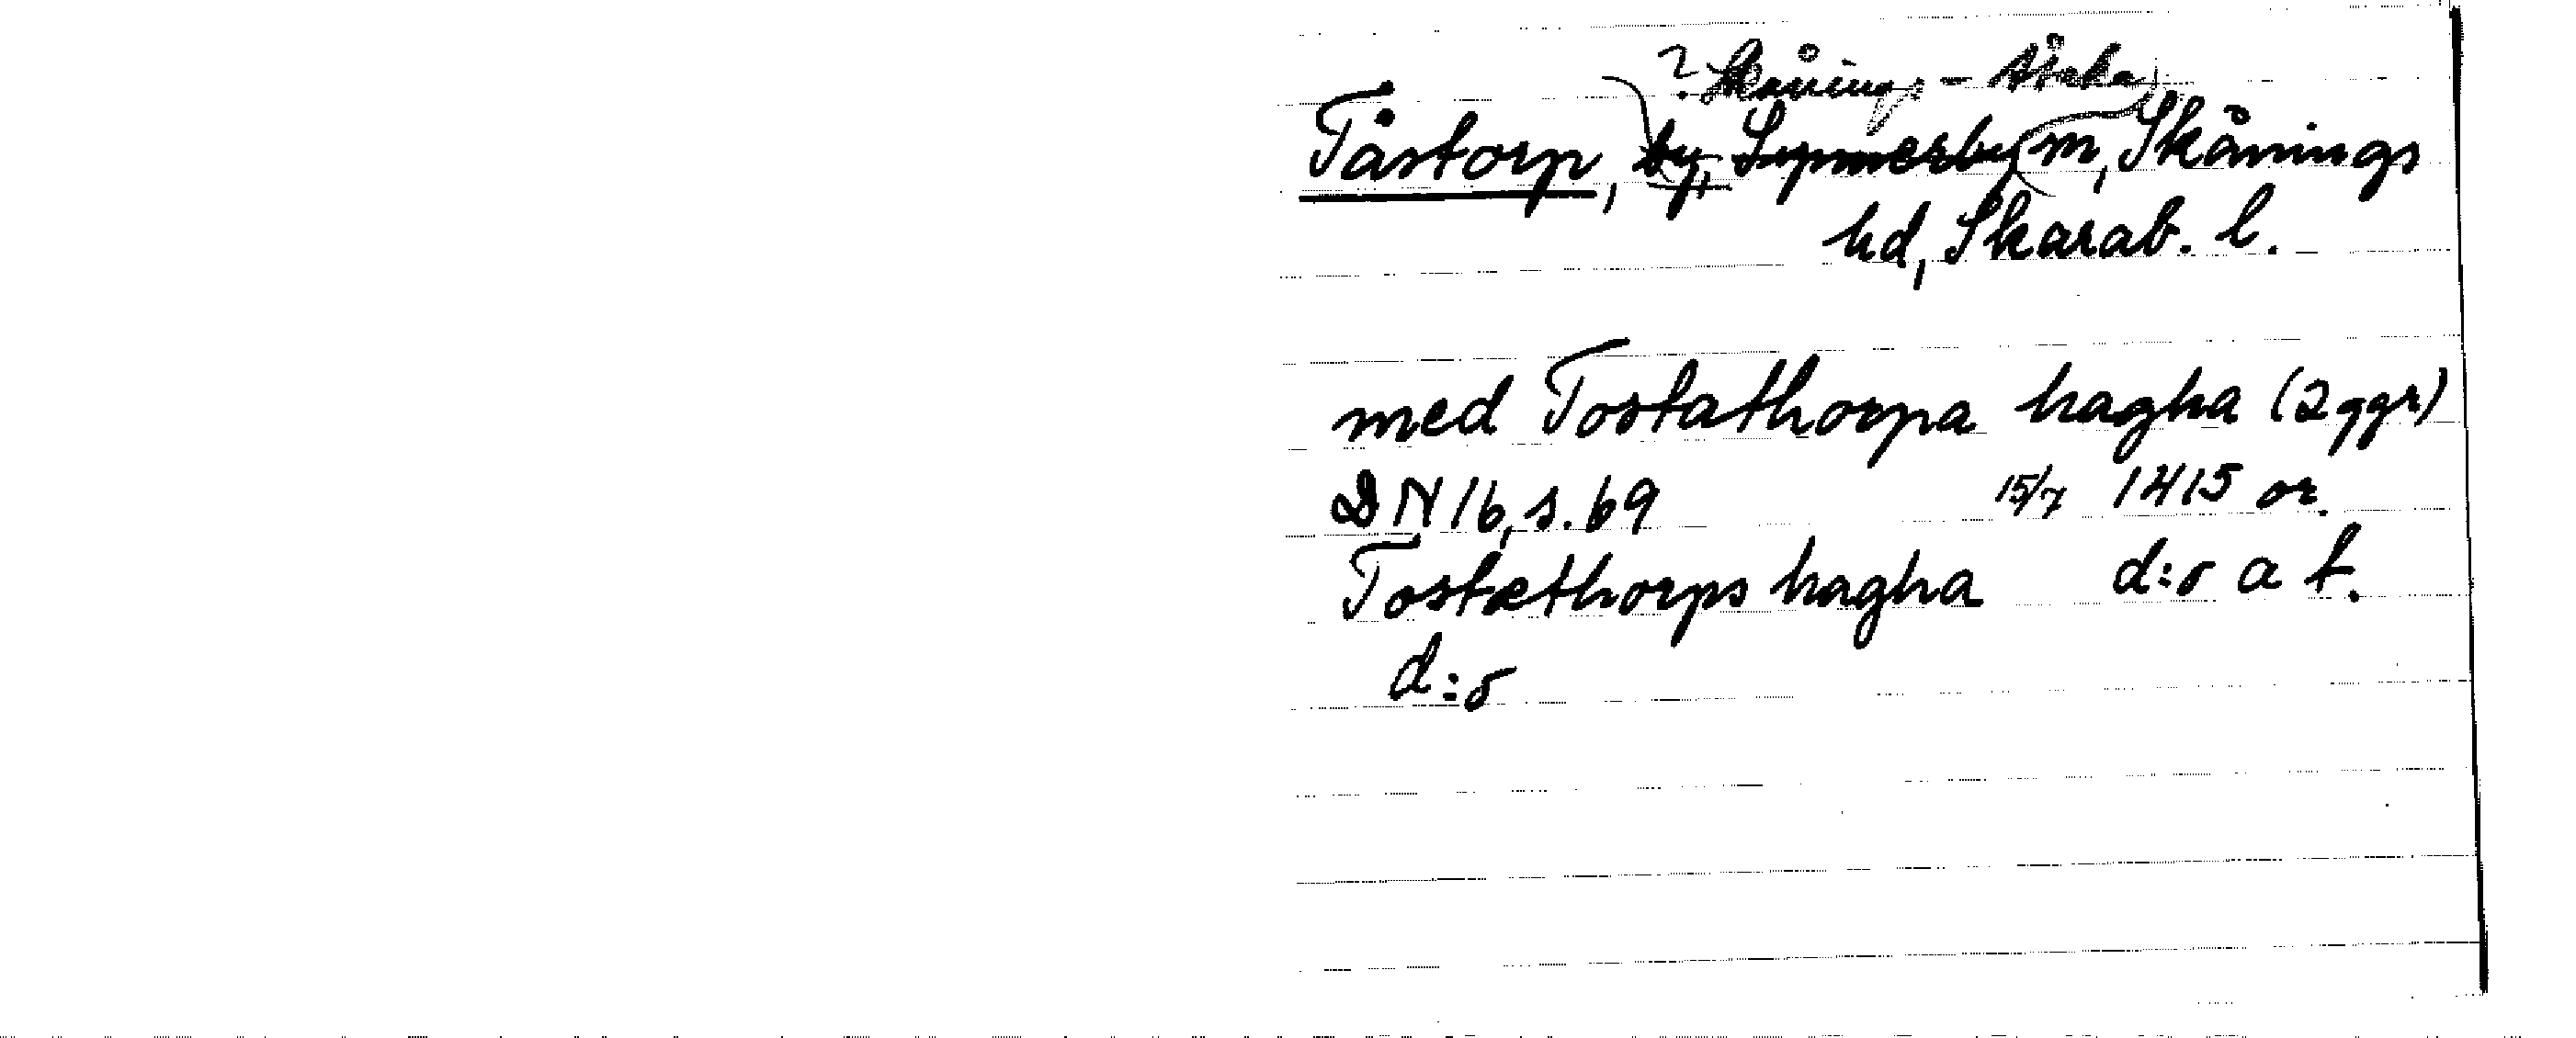 ? Skånings-Åsaka
Tåstorp, by, Synnerby sn, Skånings
hd, Skarab. l.
med Tostathorpa hagha (2 ggr)
DN 16, s. 69 15/7 1415 or.
Tostæthorps hagha d:o a t.
d:o